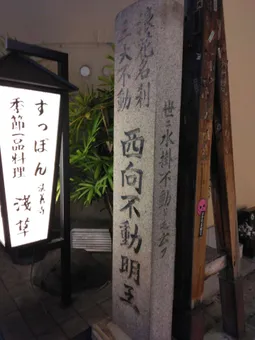 浪花名刹
三大不動
世ニ水掛不動
西向不動明王
すっぽん
季節一品料理
浅草